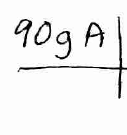 90g A